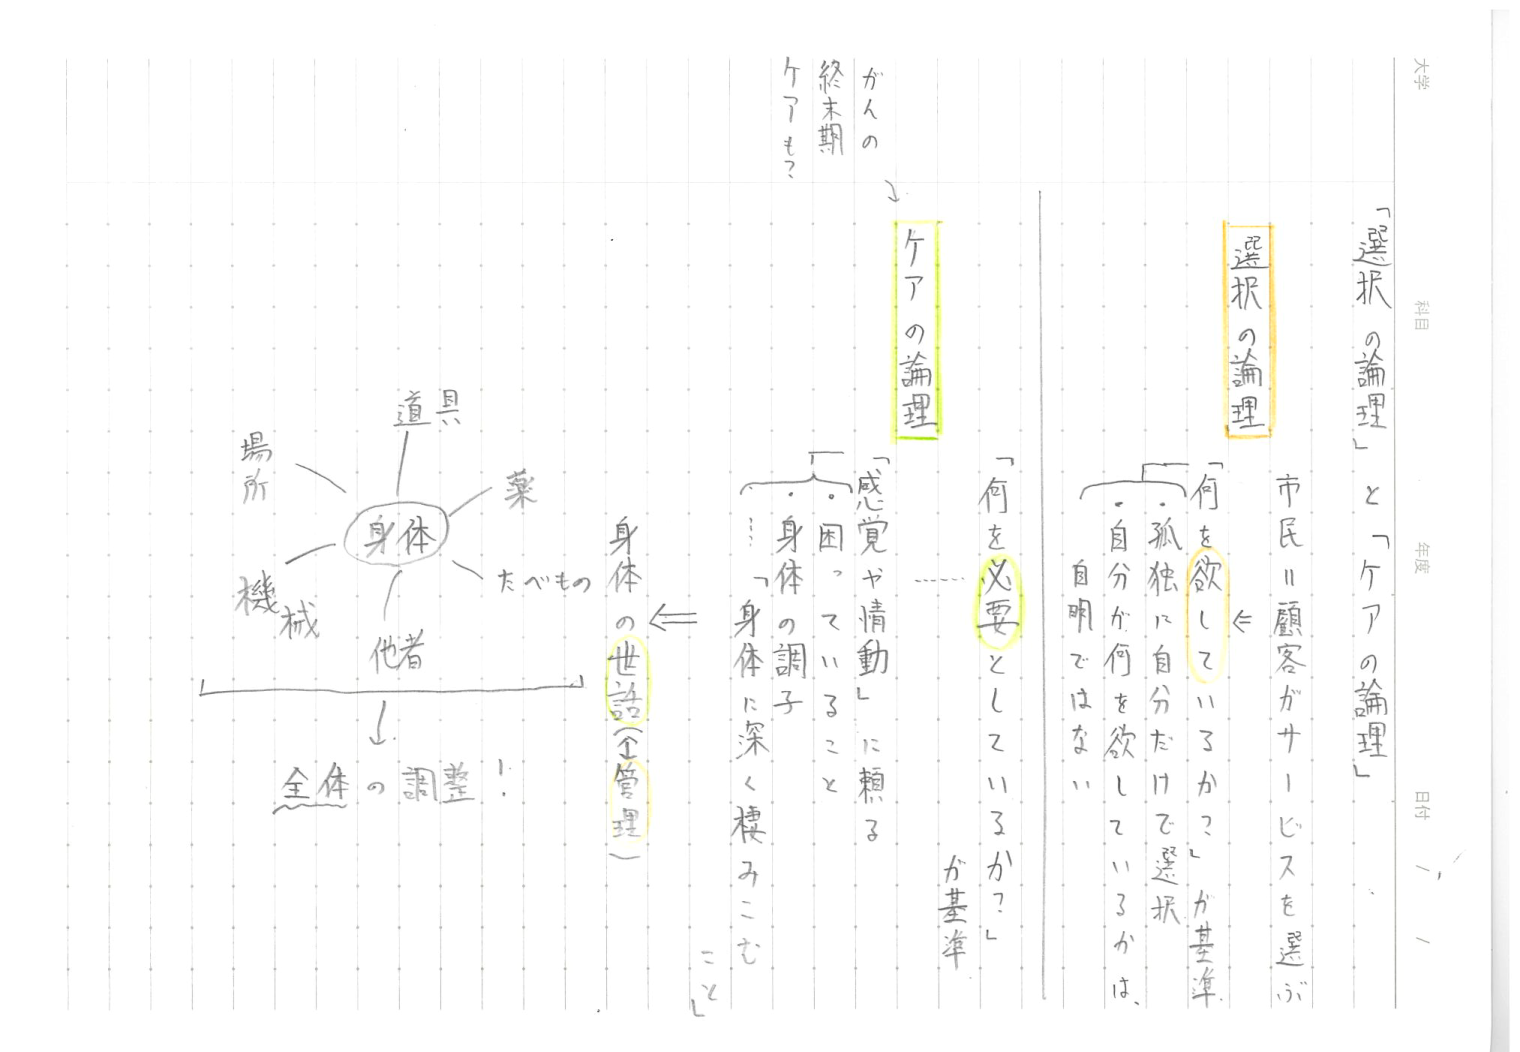 大学
科目
年度
日付 / /
「選択の論理」と「ケアの論理」
選択の論理
市民=顧客がサービスを選ぶ
「何を欲しているか?」が基準
・孤独に自分だけで選択
・自分が何を欲しているかは、
自明ではない
がんの
終末期
ケアも?
ケアの論理
「何を必要としているか?」
が基準
「感覚や情動」に頼る
・困っていること
・身体の調子
…「身体に深く棲みこむ
こと」
身体の世話(↔管理)
道具
薬
たべもの
他者
機械
場所
身体
全体の調整!